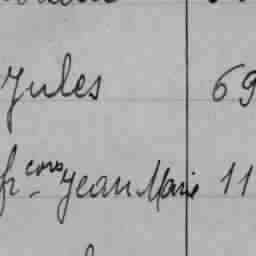 Jules 69
fr cois Jean Marie 11